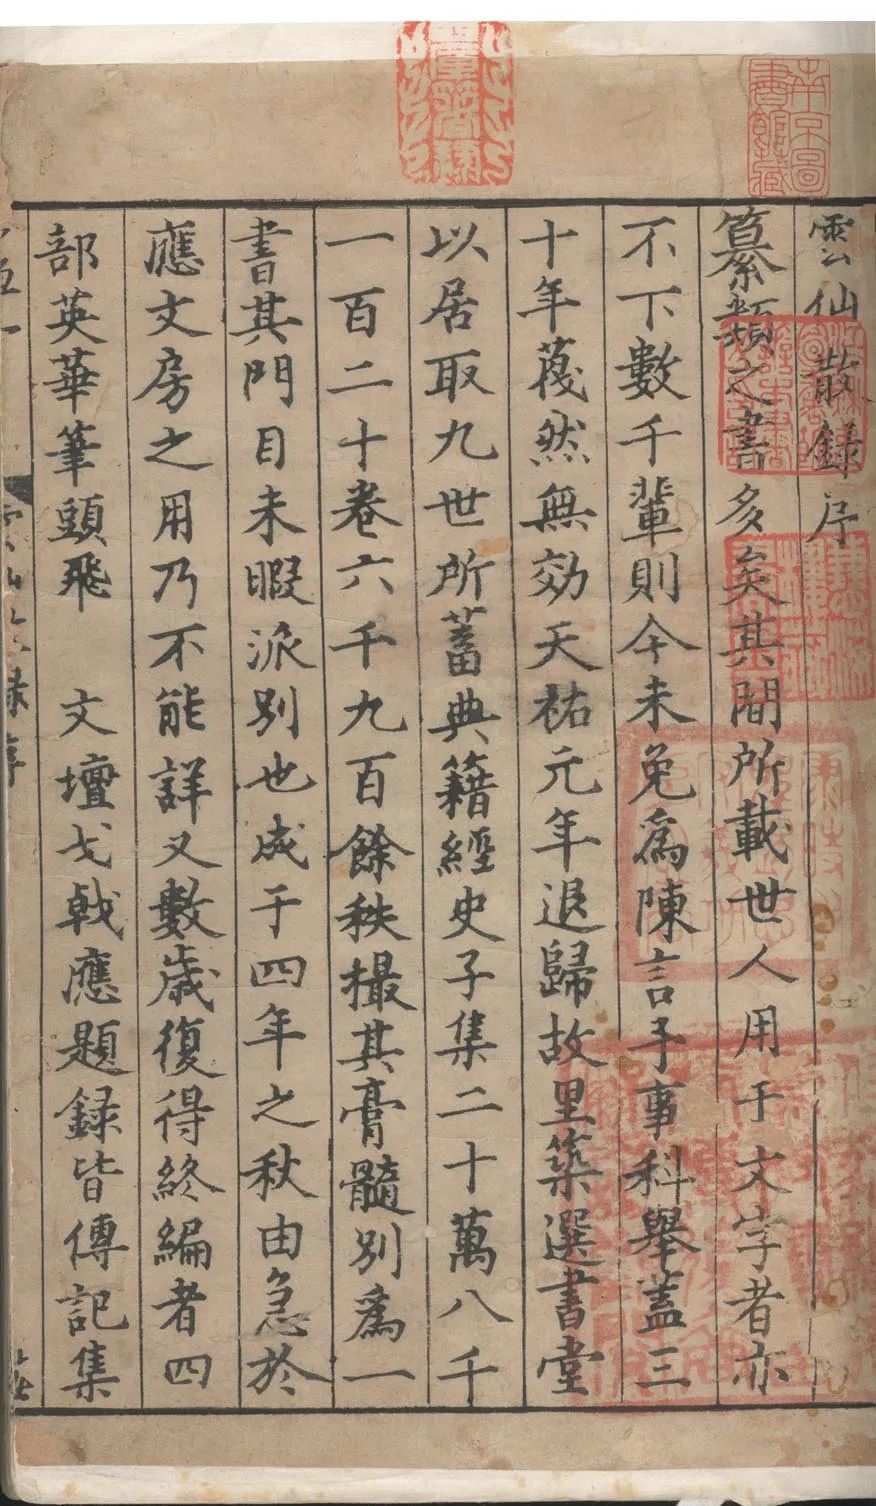 雲仙散錄序
纂類之書多矣其間所載世人用于文字者亦
不下數千輩則今未免爲陳言予事科舉蓋三
十年蔑然無効天祐元年退歸故里築選書堂
以居取九世所蓄典籍經史子集二十萬八千
一百二十卷六千九百餘秩撮其膏髓別爲一
書其門目未暇派別也成于四年之秋由急於
應文房之用乃不能詳又數歲復得終編者四
部英華筆頭飛　文壇戈戟應題錄皆傳記集